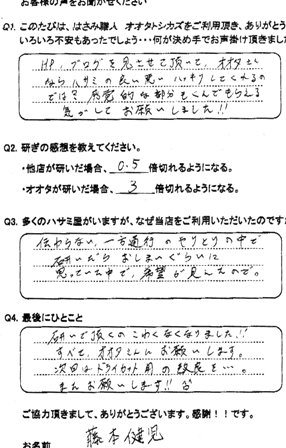 お客様の声をお聞かせください
Q1. このたびは、はさみ職人 オオタトシカズをご利用頂き、ありがとう
いろいろ不安もあったでしょう・・・何が決め手でお声掛け頂きまし
HP、ブログを見させて頂いて、オオタさん
なら ハサミの良い悪い ハッキリしてくれるの
では? 感覚的な部分もくんでもらえる
気がして お願いしました!!
Q2. 研ぎの感想を教えてください。
・他店が研いだ場合、 0.5 倍切れるようになる。
・オオタが研いだ場合、 3 倍切れるようになる。
Q3. 多くのハサミ屋がいますが、なぜ当店をご利用いただいたのですか
伝わらない、一方通行 のやりとりの中で
研いだら おしまいぐらいに
思っていた中で、希望が見えたので。
Q4. 最後にひとこと
研いで頂くの こわくなくなりました!!
すべて、オオタさんに お願いします。
次回は ドライカット用 の 設定を…。
またお願いします!!
ご協力頂きまして、ありがとうございます。感謝!!です。
お名前 藤本健児